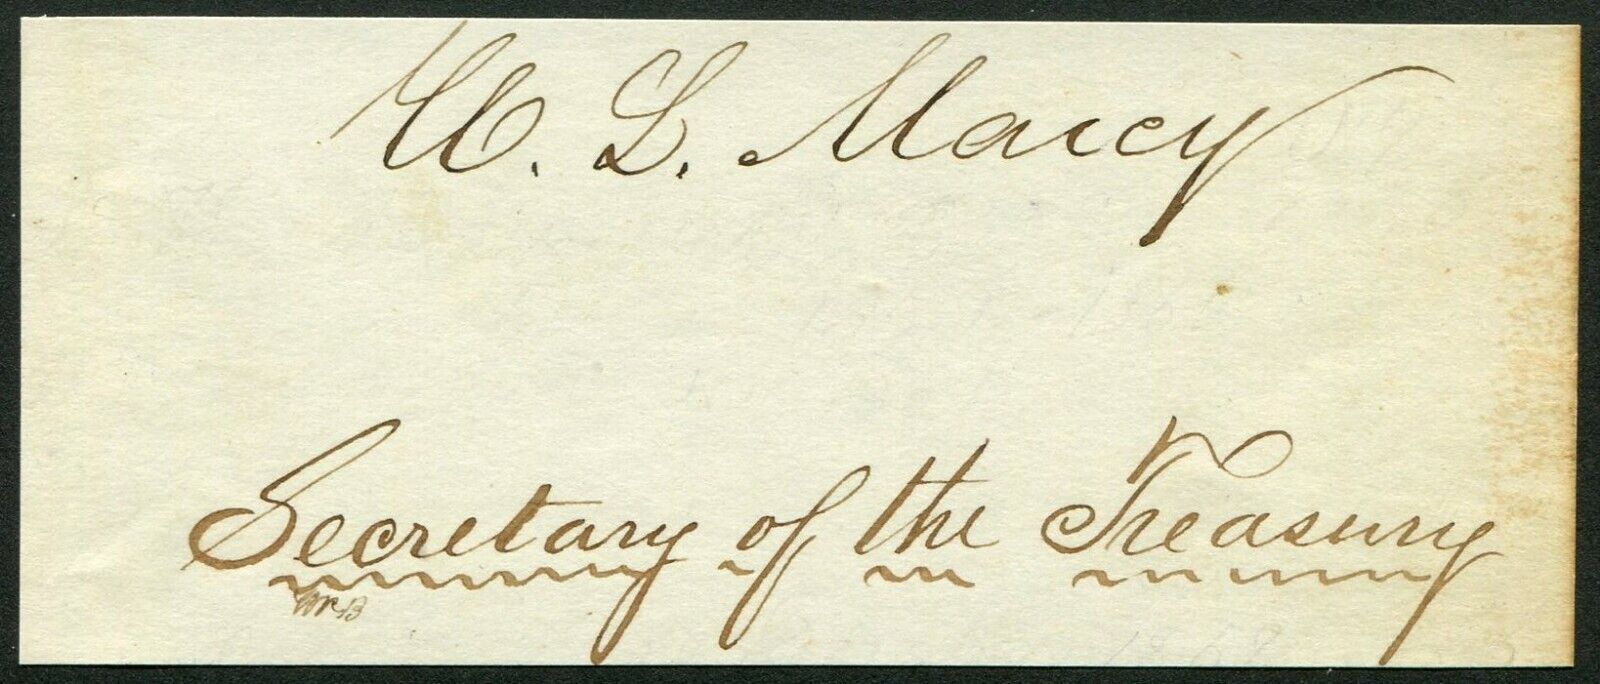 W. L. Marcy
Secretary of the Treasury